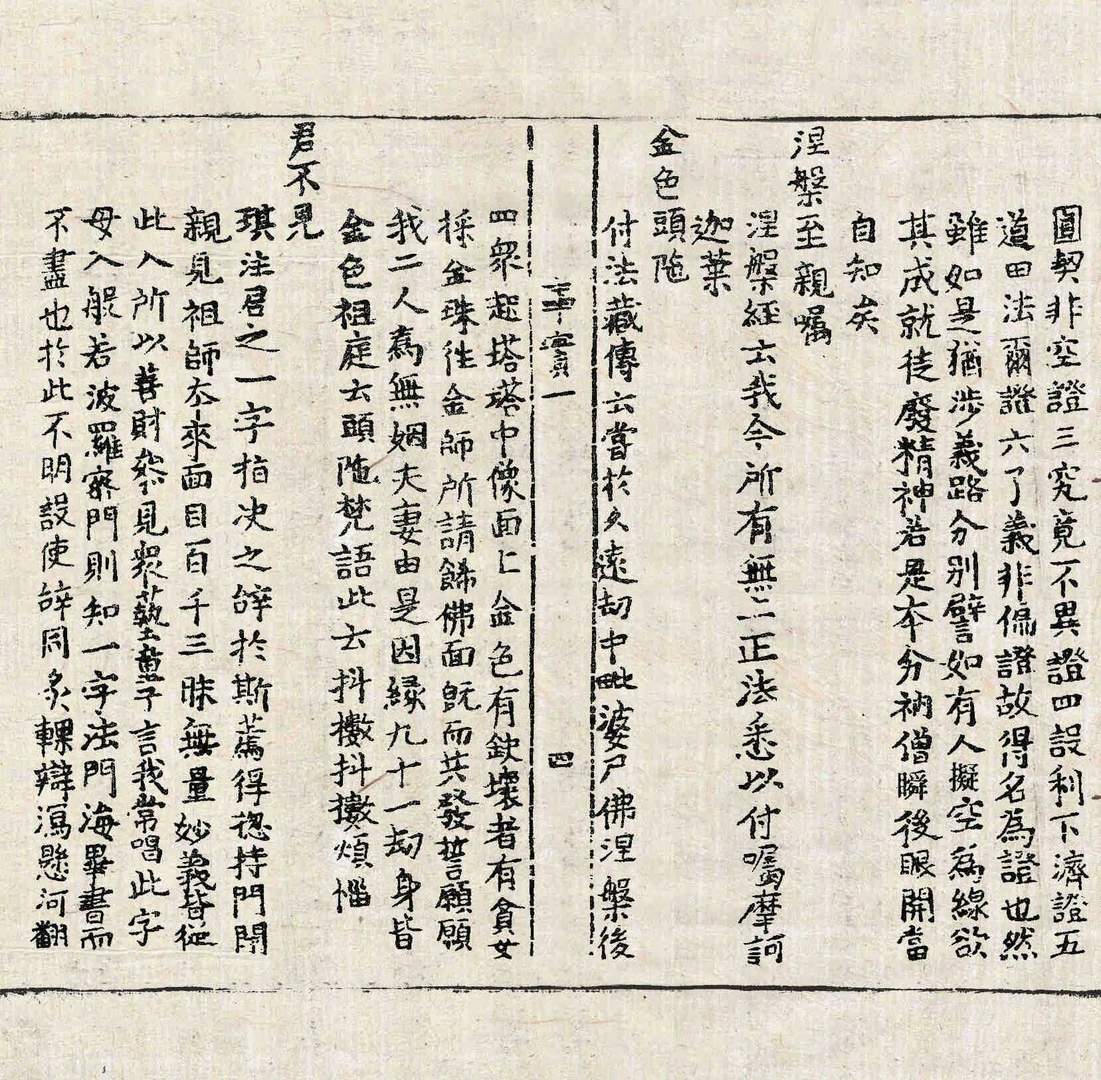 圓契非空證三究竟不異證四設利下濟證五
道田法爾證六了義非偏證故得名為證也然
雖如是猶涉義路分別譬如有人擬空為線欲
其成就徒廢精神若是本分衲僧瞬後眼開當
自知矣
涅槃至親囑
涅槃經云我今所有無上正法悉以付囑摩訶
迦葉
金色頭陁
付法藏傳云嘗於久遠劫中毗婆尸佛涅槃後
一
四
四衆起塔塔中像面上金色有缺壞者有貧女
採金珠徃金師所請餙佛面既而共發誓願願
我二人爲無姻夫妻由是因緣九十一劫身皆
金色祖庭云頭陁梵語此云抖擻抖擻煩惱
君不見
琪注君之一字指决之辝於斯薦得揔持門開
親見祖師夲來面目百千三昧無量妙義皆從
此入所以善財叅見衆藝童子言我常唱此字
母入般若波羅密門則知一字法門海墨書而
不盡也於此不明設使辝同炙輠辯瀉懸河翻